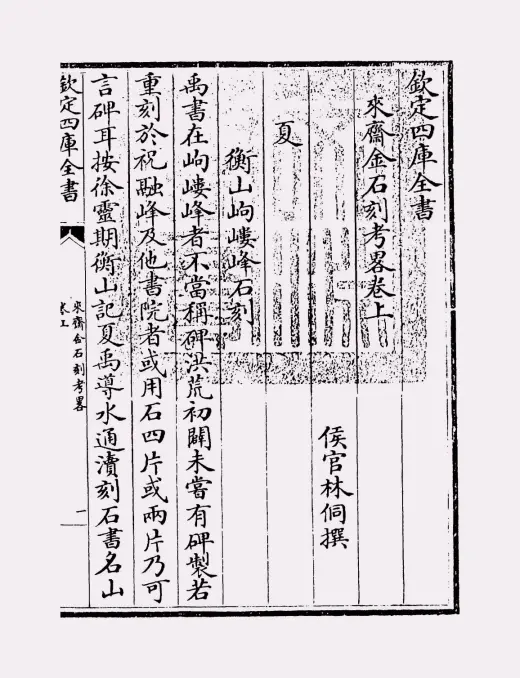 欽定四庫全書
來齋金石刻考畧卷上
侯官林侗撰
夏
衡山岣嶁峰石刻
禹書在岣嶁峰者不當稱碑洪荒初闢未嘗有碑製若
重刻於祝融峰及他書院者或用石四片或兩片乃可
言碑耳按徐靈期衡山記夏禹導水通瀆刻石書名山
欽定四庫全書
來齋金石刻考畧
一